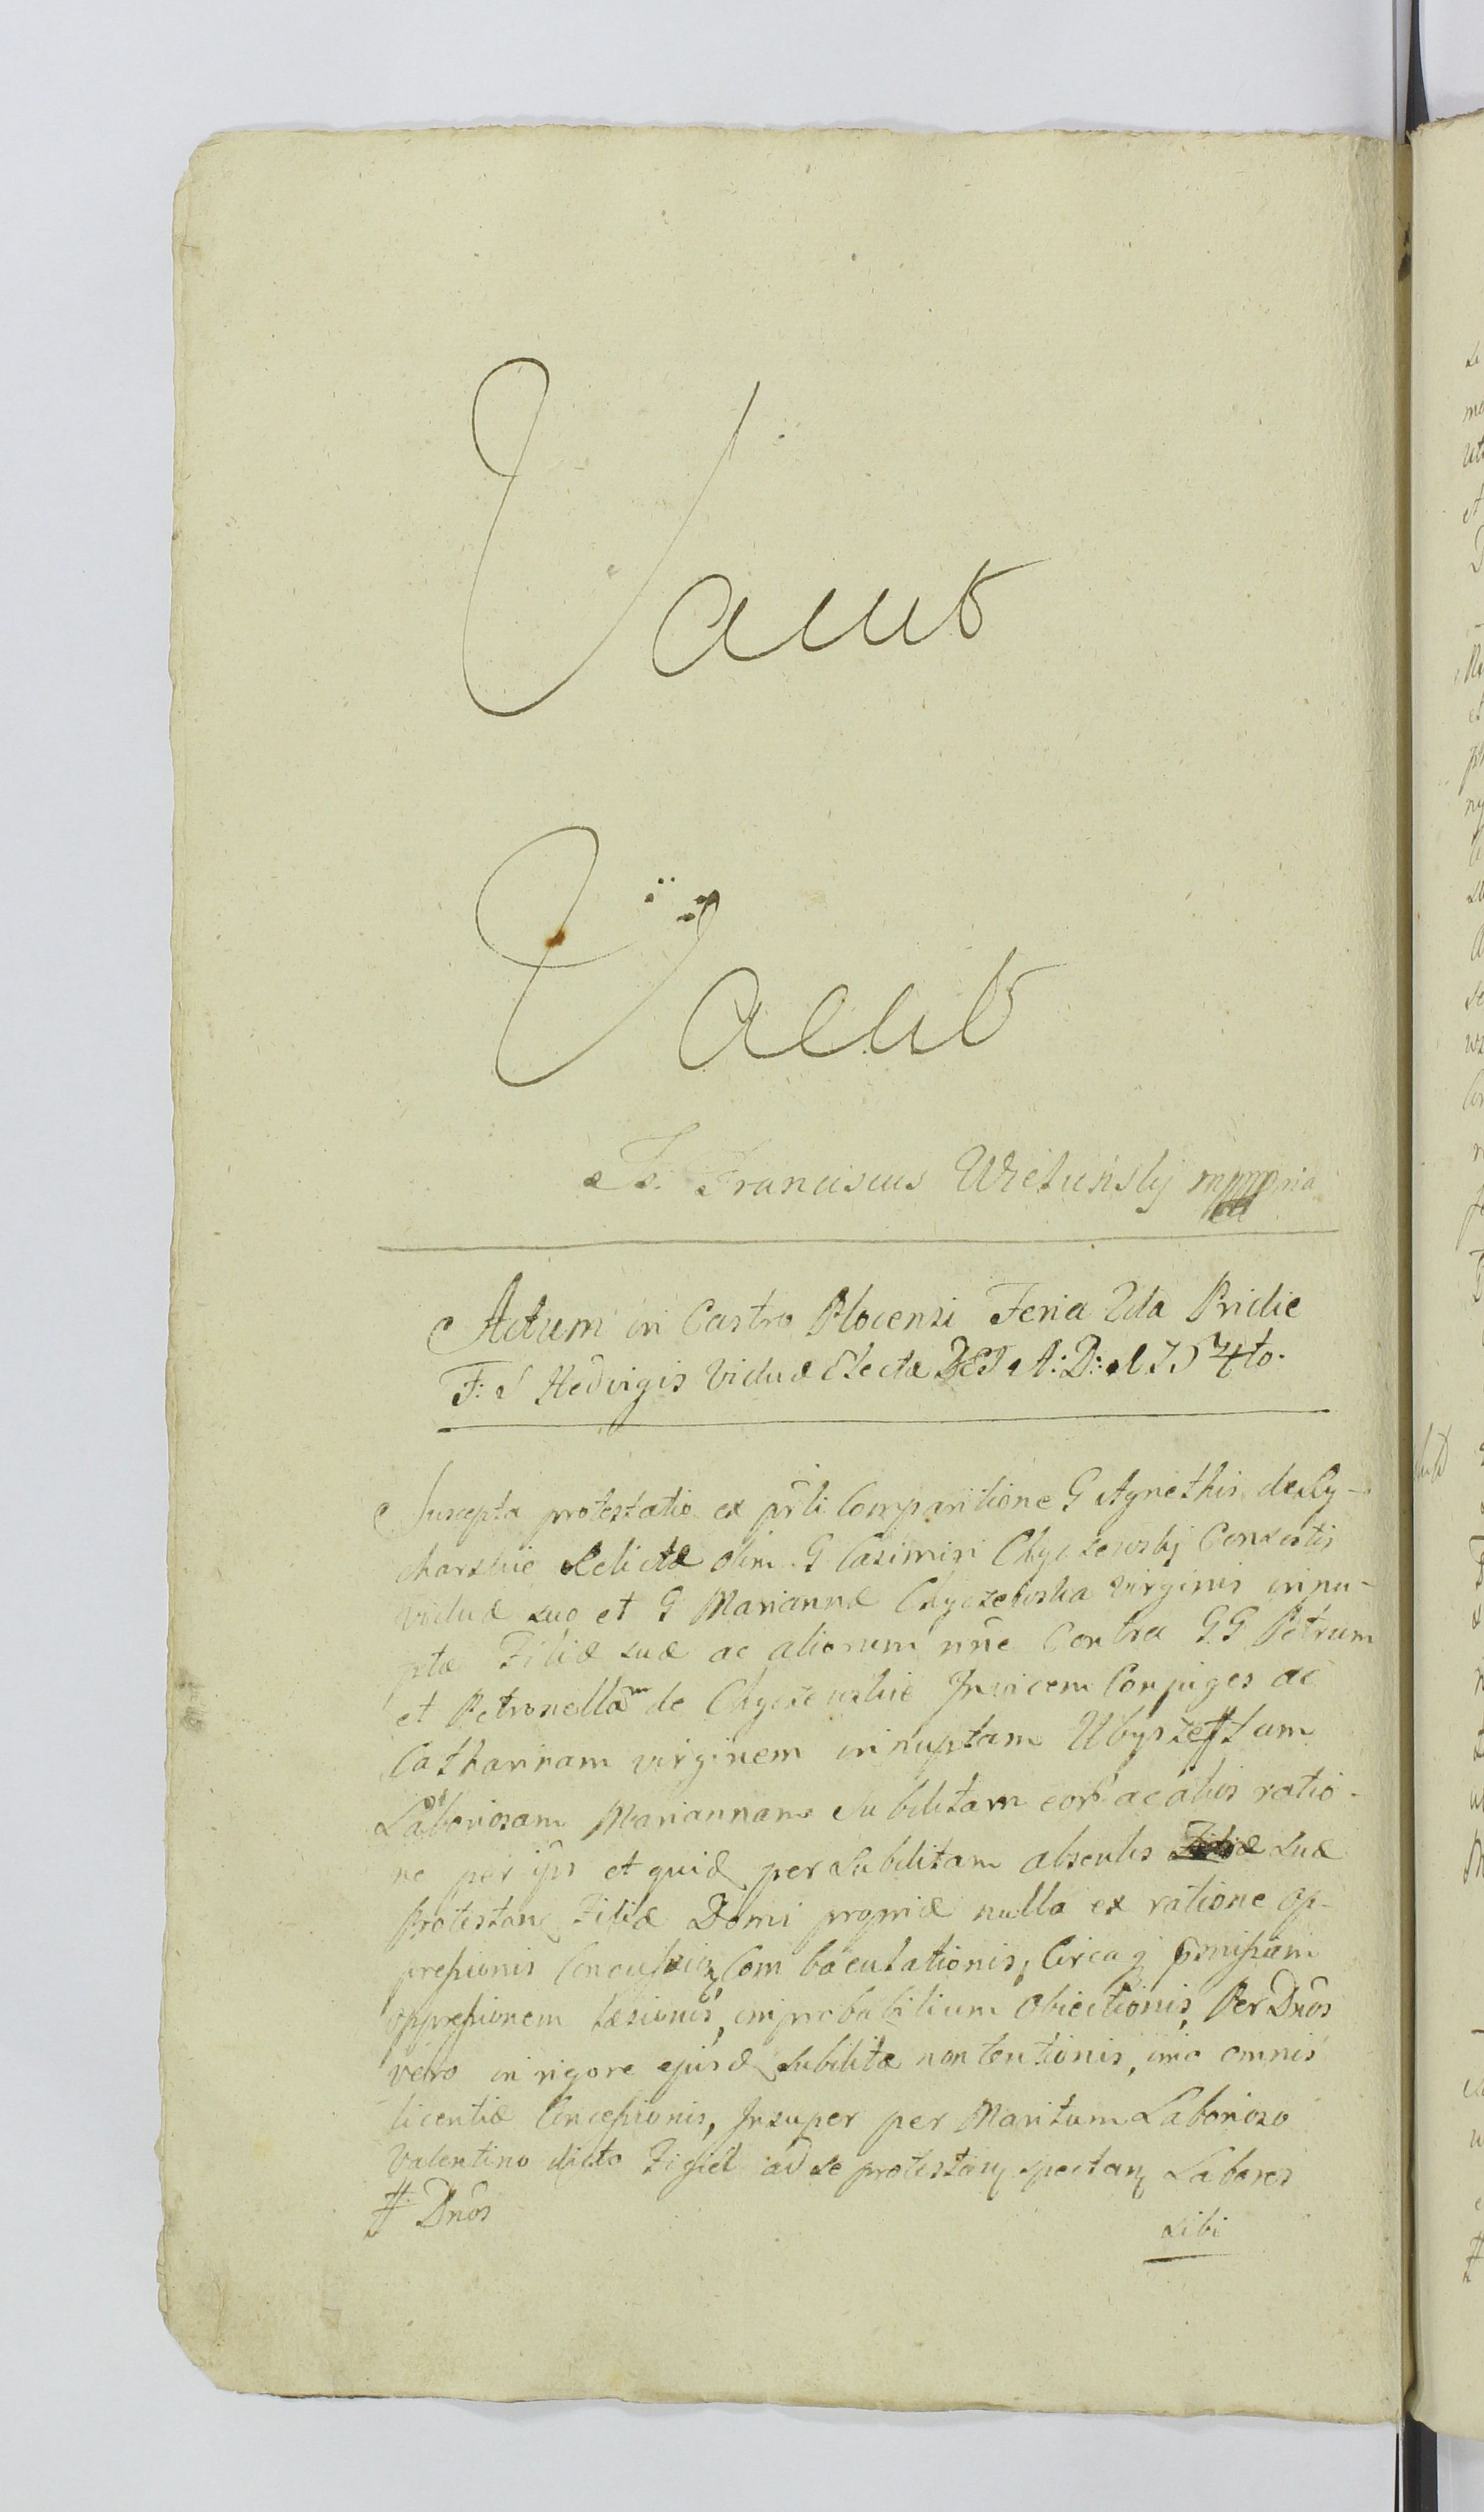 Vacat
Vacat
Franciscus Wieluński mppria
Actum in Castro Plocensi Feria 2da Pridie
F: S Hedvigis Viduæ Electæ A: D: 1754to.
Suscepta protestatio ex prsti Comparitione G Agnethis de Cy-
charskie Relictæ olim G Casimiri Chyczewskij Consortis
viduæ suo et G Mariannæ Chyczewska virginis innu-
ptæ Filiæ suæ ac aliorum nñe Contra GG Petrum
et Petronellam de Chyczewskie Invicem Conjuges ac
Catharinam virginem innuptam
et
Laboriosam Mariannam Subditam eorum ac aliis ratio-
ne per ips et quidem per Subditam absentis suæ
Protestan Filiæ Domi propriæ nulla ex ratione op-
pressionis Concussionis Com baculationis, Circaq
oppressionem læsionis, improbabilium Obiectionis, Per Dnos
vero in rigore ejusd Subditæ non tentionis, imo omnis
licentiæ Concessionis, Insuper per Maritum Laborioso
Valentino dicto Figiel ad se protestan spectan Labores
# Dnos
sibi